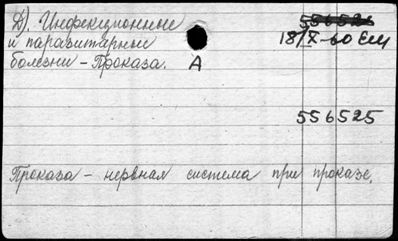 Д). Инфекционные
и паразитарные
болезни – Проказа. А
556525
18/X-60
556525
Проказа – нервная система при проказе.